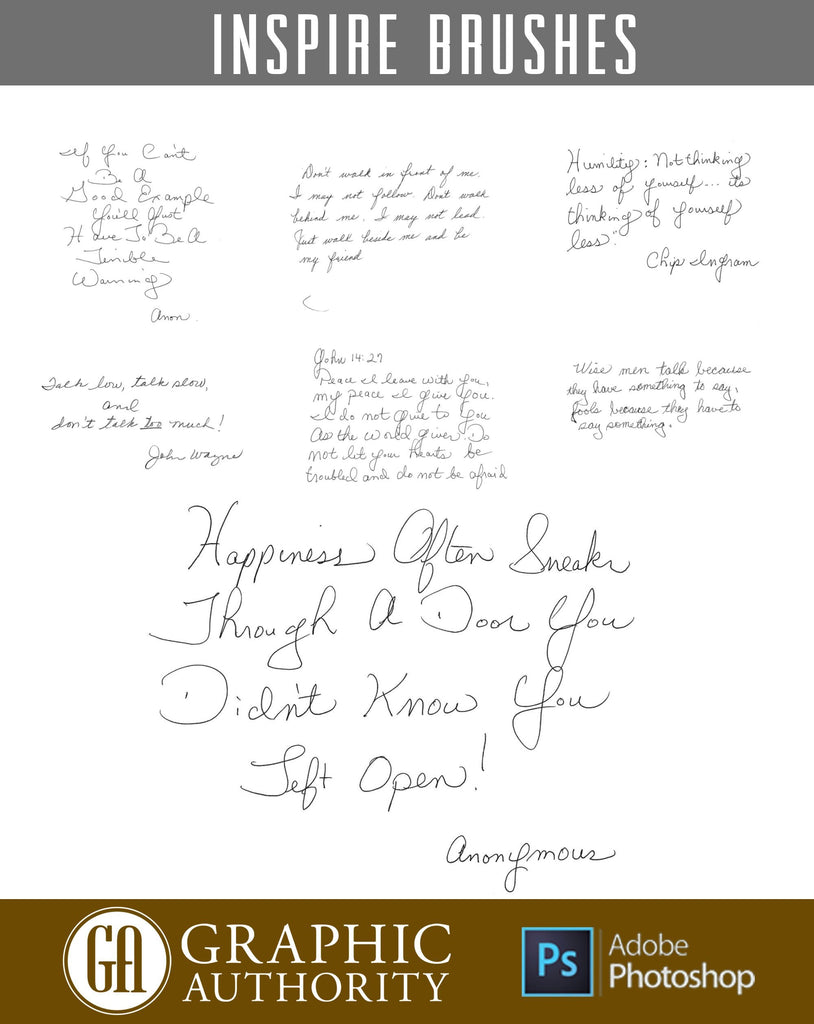 INSPIRE BRUSHES
If You Can't
Be A
Good Example
You'll Just
Have To Be A
Terrible
Warning
Anon.
Don't walk in front of me.
I may not follow. Don't walk
behind me. I may not lead.
Just walk beside me and be
my friend
Humility: Not thinking
less of yourself... its
thinking of yourself
less"
Chip Ingram
Talk low, talk slow,
and
don't talk too much!
John Wayne
John 14:27
Peace I leave with you,
my peace I give you.
I do not give to you
As the world gives. Do
not let your hearts be
troubled and do not be afraid
Wise men talk because
they have something to say,
fools because they have to
say something.
Happiness Often Sneaks
Through A Door You
Didn't Know You
Left Open!
Anonymous
GA
GRAPHIC
AUTHORITY
Ps
Adobe
Photoshop